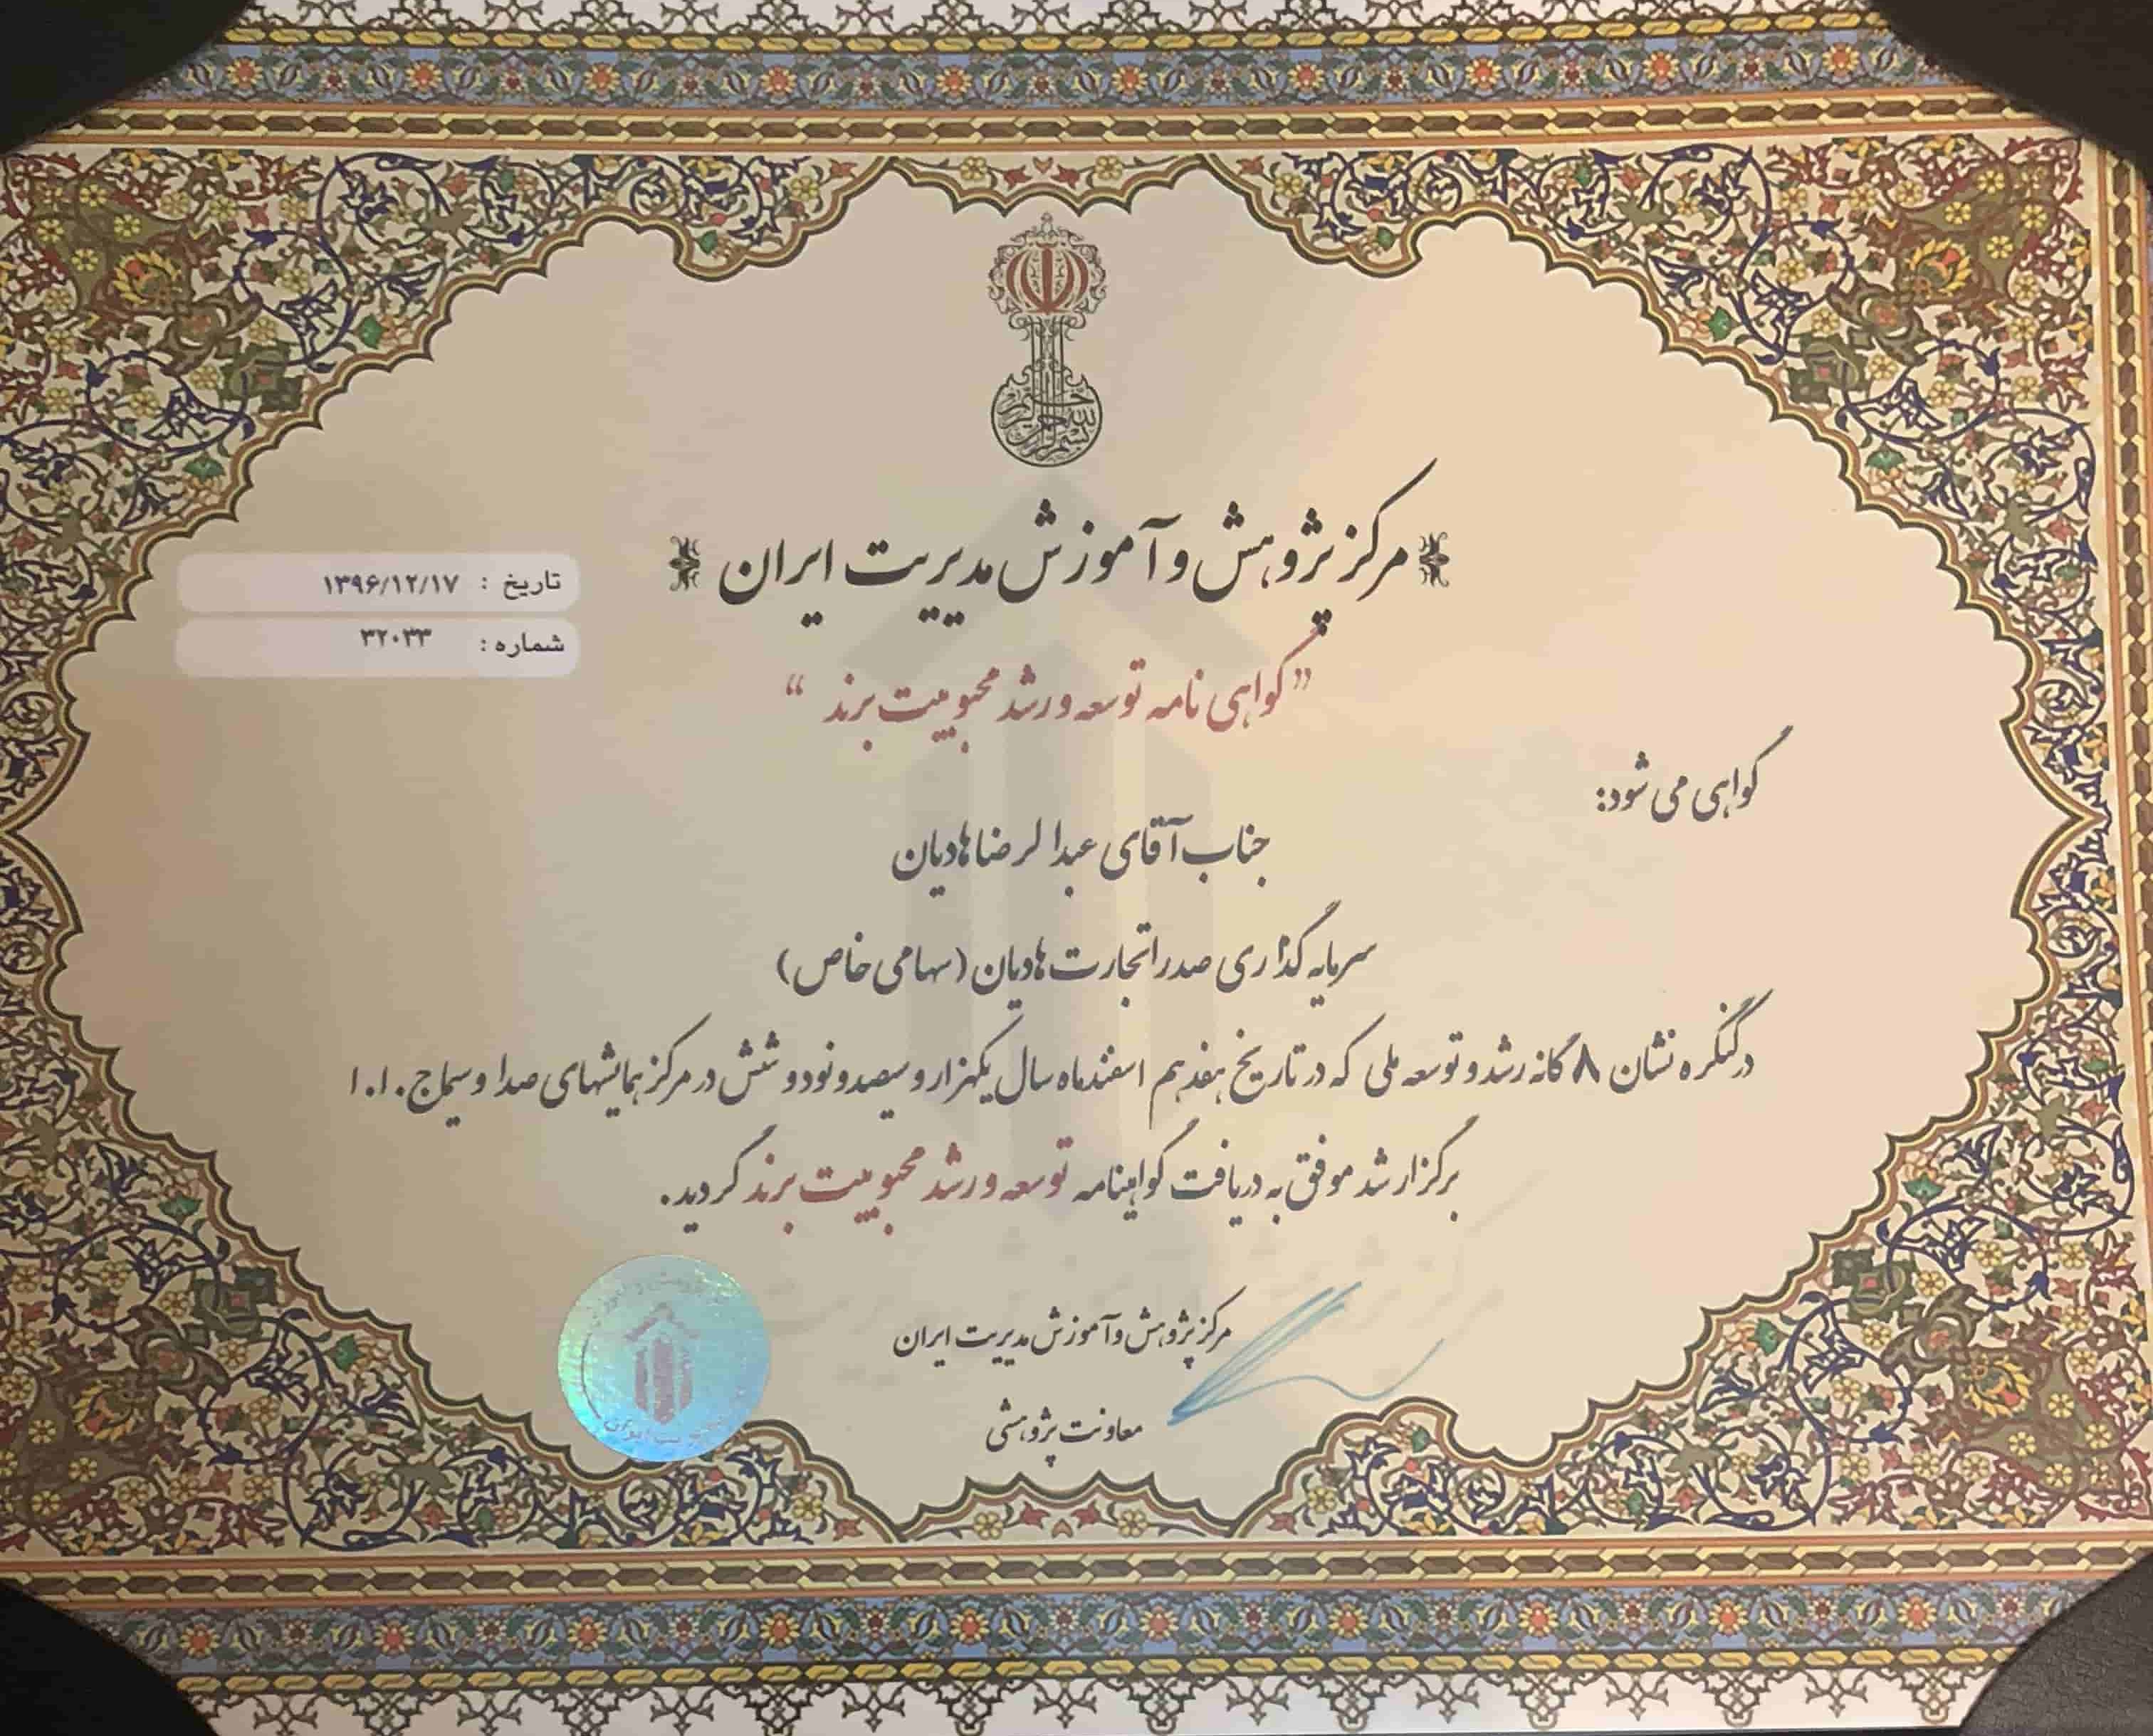 بسم الله الرحمن الرحیم
مرکز پژوهش و آموزش مدیریت ایران
تاریخ : ۱۳۹۶/۱۲/۱۷
شماره : ۳۲۰۳۳
”گواهی نامه توسعه و رشد محبوبیت برند“
گواهی می شود:
جناب آقای عبدالرضا هادیان
سرمایه گذاری صدرا تجارت هادیان (سهامی خاص)
در کنگره نشان ۸ گانه رشد و توسعه ملی که در تاریخ هفدهم اسفندماه سال یکهزار و سیصد و نود و شش در مرکز همایشهای صدا و سیما ج.ا.ا
برگزار شد موفق به دریافت گواهینامه توسعه و رشد محبوبیت برند گردید.
مرکز پژوهش و آموزش مدیریت ایران
معاونت پژوهشی